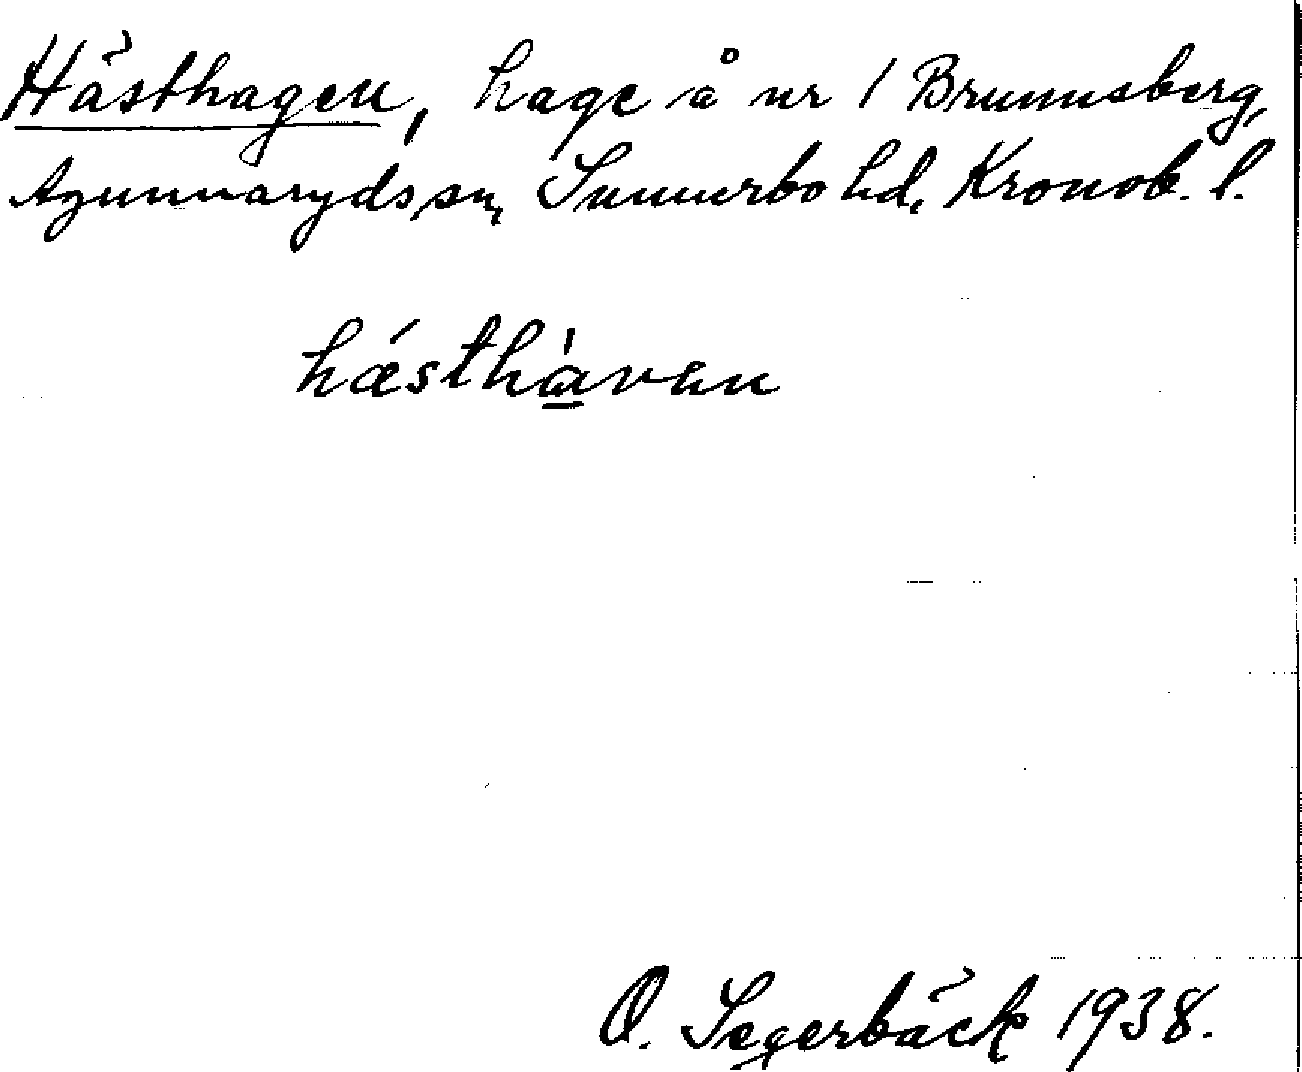 Hästhagen, hage å nr 1 Brunnsberg,
Agunnaryds sn, Sunnerbo hd, Kronob. l.
hǽsthàven
O. Segerbäck 1938.